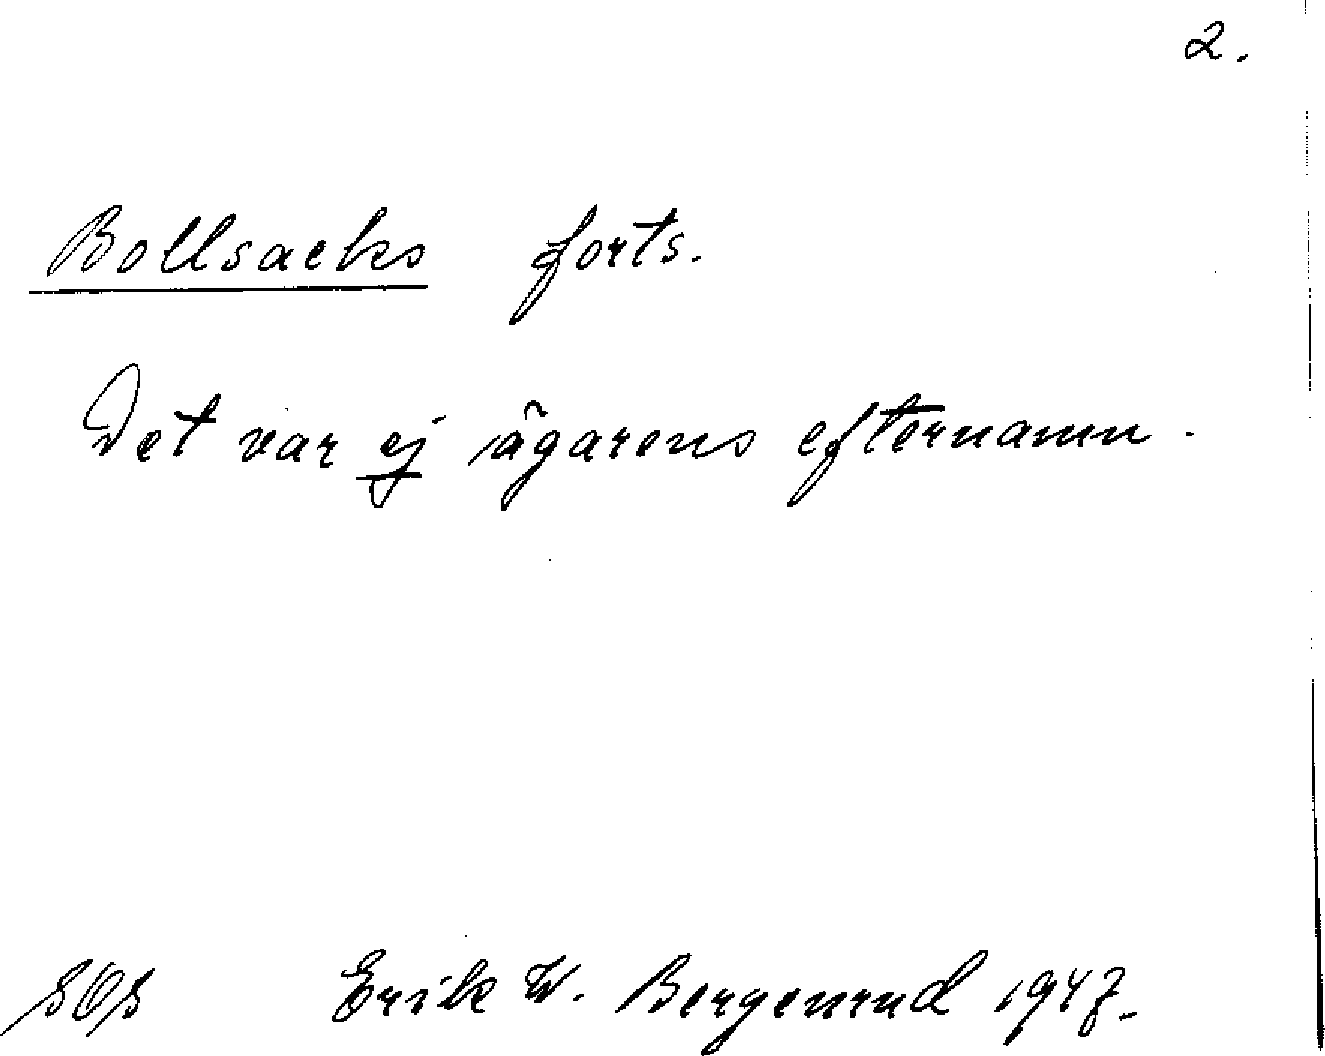 2.
Bollsacks forts.
Det var ej ägarens efternamn.
Erik W. Bergenrud 1947.